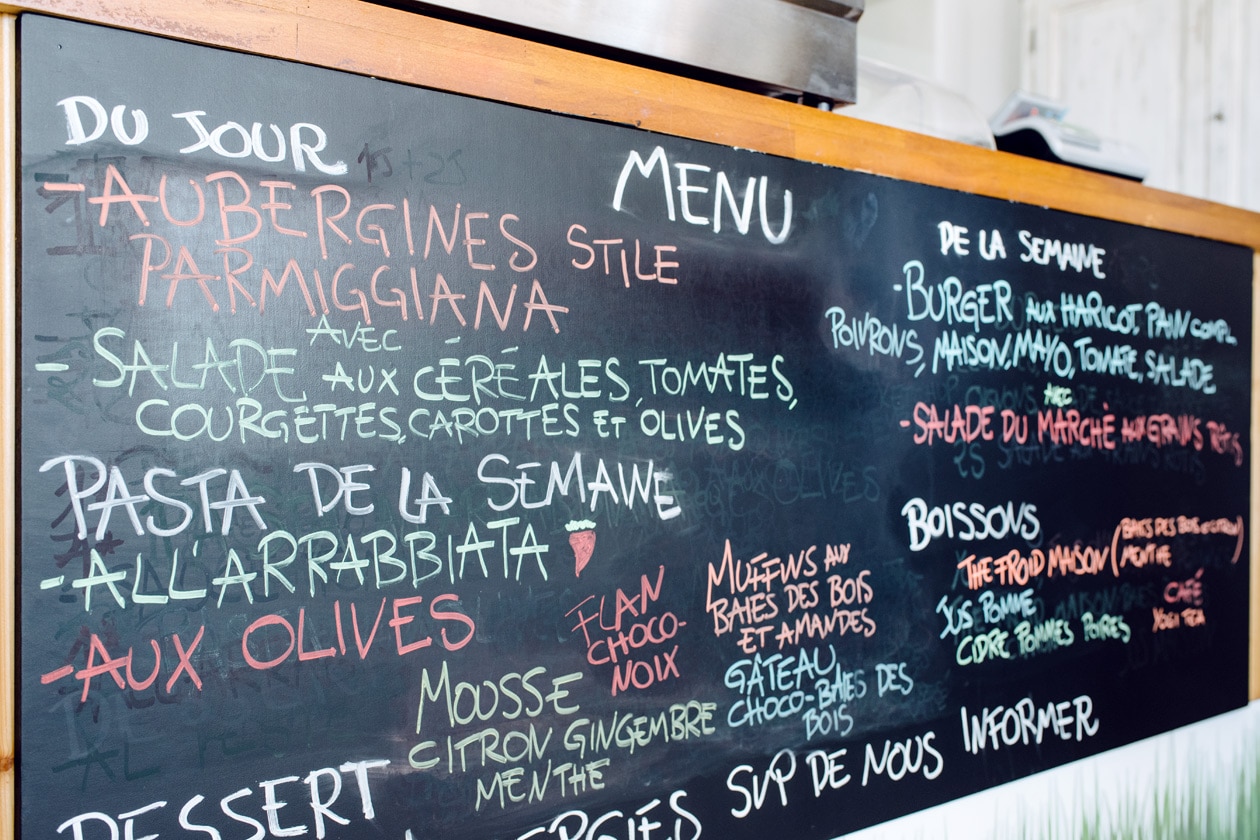 MENU
DU JOUR
-AUBERGINES STILE
PARMIGGIANA
AVEC
-SALADE AUX CÉRÉALES, TOMATES,
COURGETTES, CAROTTES ET OLIVES
PASTA DE LA SEMAINE
-ALL'ARRABBIATA
-AUX OLIVES
FLAN
CHOCO-
NOIX
MUFFINS AUX
BAIES DES BOIS
ET AMANDES
MOUSSE
CITRON GINGEMBRE
MENTHE
GÂTEAU
CHOCO-BAIES DES
BOIS
DESSERT
DE LA SEMAINE
-BURGER AUX HARICOT, PAIN COMPL.
POIVRONS, MAISON, MAYO, TOMATE, SALADE
AVEC
-SALADE DU MARCHÈ AUX GRAINS RÔTIS
BOISSONS
THE FROID MAISON (BAIES DES BOIS CITRON)
MENTHE
JUS POMME
CAFÉ
CIDRE POMMES POIRES
YOGI TEA
SVP DE NOUS INFORMER